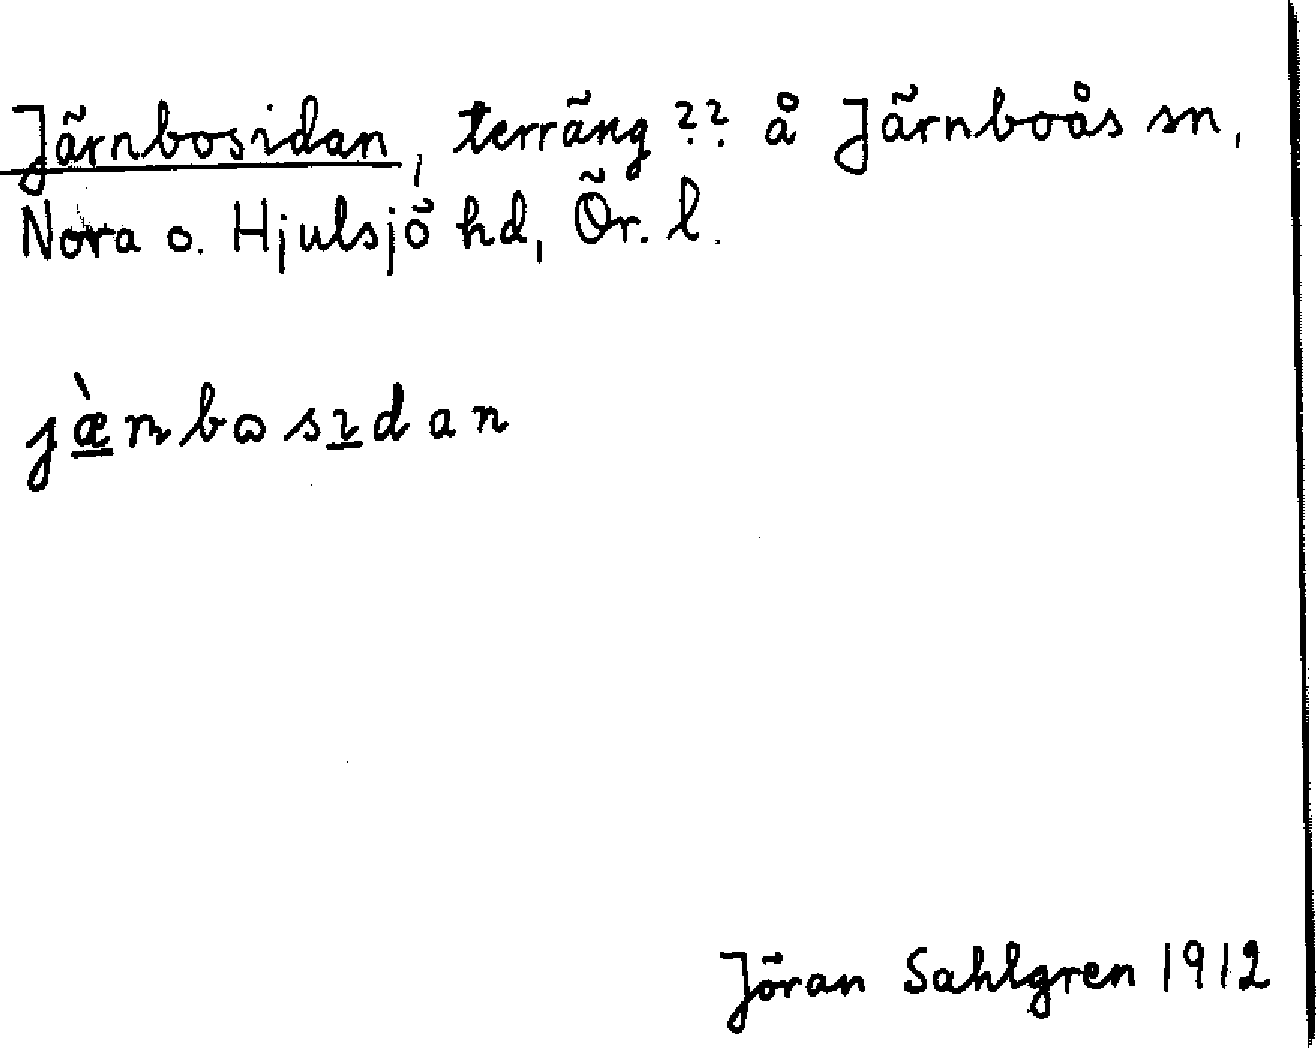 Järnbosidan, terräng ?? å Järnboås sn,
Nora o. Hjulsjö hd, Ör. l.
jæ̀nbɷsɩdan
Jöran Sahlgren 1912